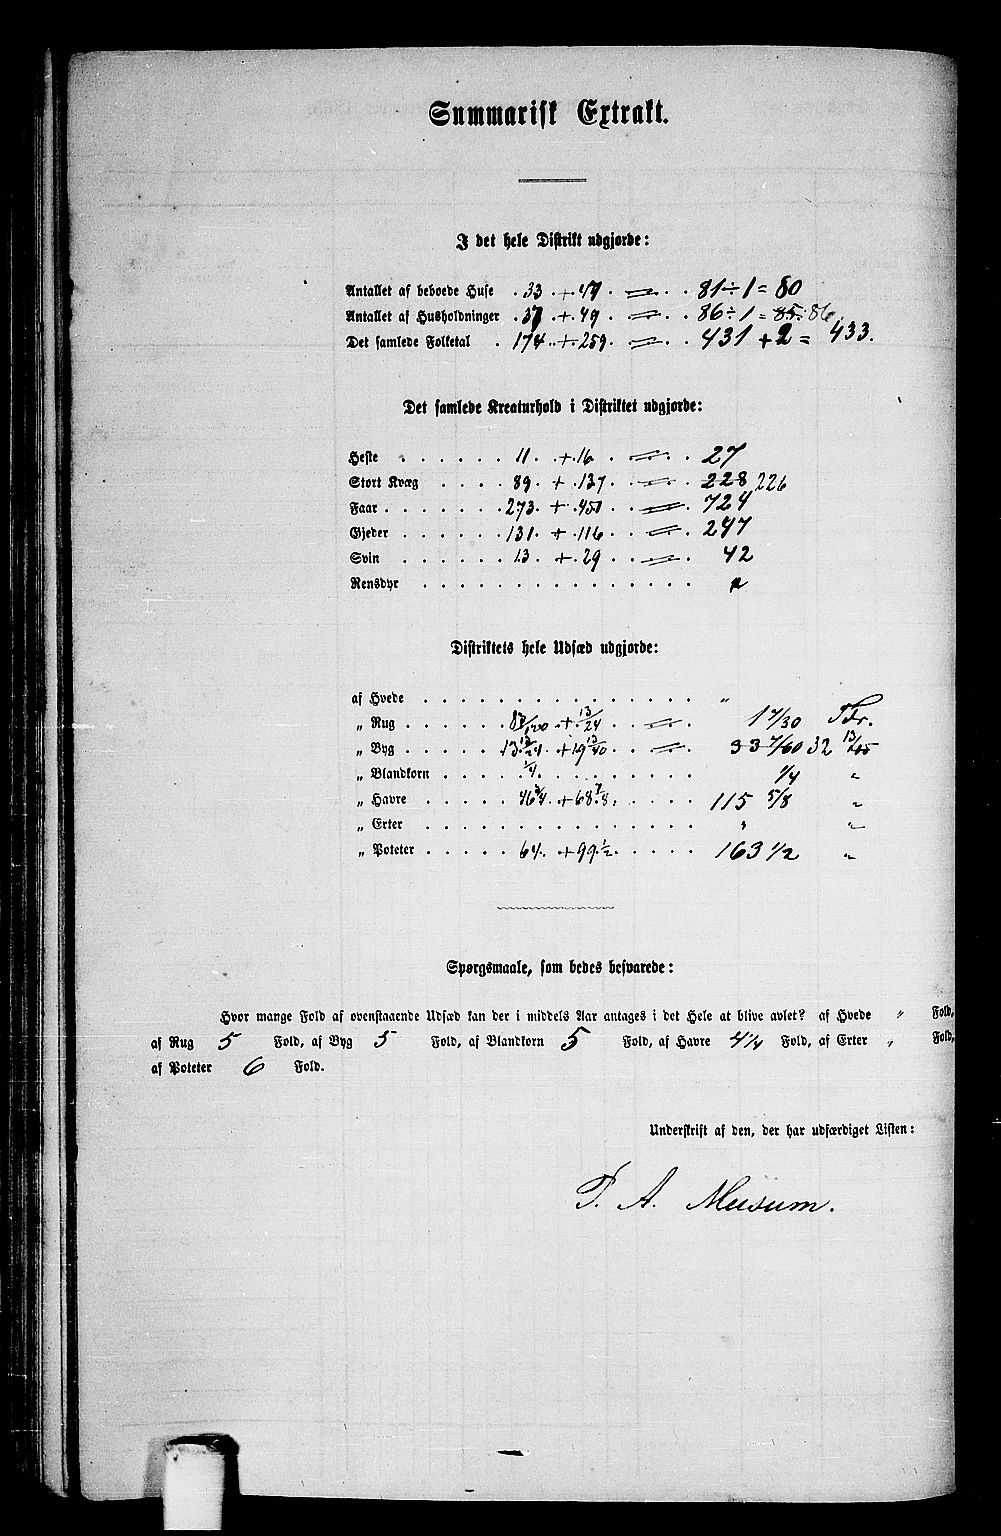 Summarisk Extrakt.
I det hele Distrikt udgjorde:
Antallet af beboede Huse . 33 . + 47 . = . . 81 ÷ 1 = 80
Antallet af Husholdninger . 37 . + 49 . = . . 86 ÷ 1 = 85. 86.
Det samlede Folketal . 174 . + . 259 . = . . 431 + 2 = 433.
Det samlede Kreaturhold i Distriktet udgjorde:
Heste . . . . . . 11 . + . 16 . = . . 27
Stort Kvæg . . . . 89 . + . 137 . = . . 228 226
Faar . . . . . . . 273 . + . 451 . . = . 724
Gjeder . . . . . . 131 . + . 116 . . = . 247
Svin . . . . . . 13 . + . 29 . . = . 42
Rensdyr . . . . . . . . . . . . . . . "
Distriktets hele Udsæd udgjorde:
af Hvede . . . . . . . . . . . . . . . "
„ Rug . . . . . + 13/24 . . = . 1 7/30 Tdr.
„ Byg . . . . . 13 13/24 . + 19 13/40 . . = . 33 7/60 32 13/15
„ Blandkorn . . . . 1/4 . . . . . . . . 1/4 "
„ Havre . . . . . 46 3/4 . + 68 7/8 . . . . 115 5/8 "
„ Erter . . . . . . . . . . . . . . . " "
„ Poteter . . . . . 64 . + 99 1/2 . . . . 163 1/2 "
Spørgsmaale, som bedes besvarede:
Hvor mange Fold af ovenstaaende Udsæd kan der i middels Aar antages i det Hele at blive avlet? af Hvede " Fold,
af Rug 5 Fold, af Byg 5 Fold, af Blandkorn 5 Fold, af Havre 4 1/4 Fold, af Erter " Fold,
af Poteter 6 Fold.
Underskrift af den, der har udfærdiget Listen:
P. A. Musum.